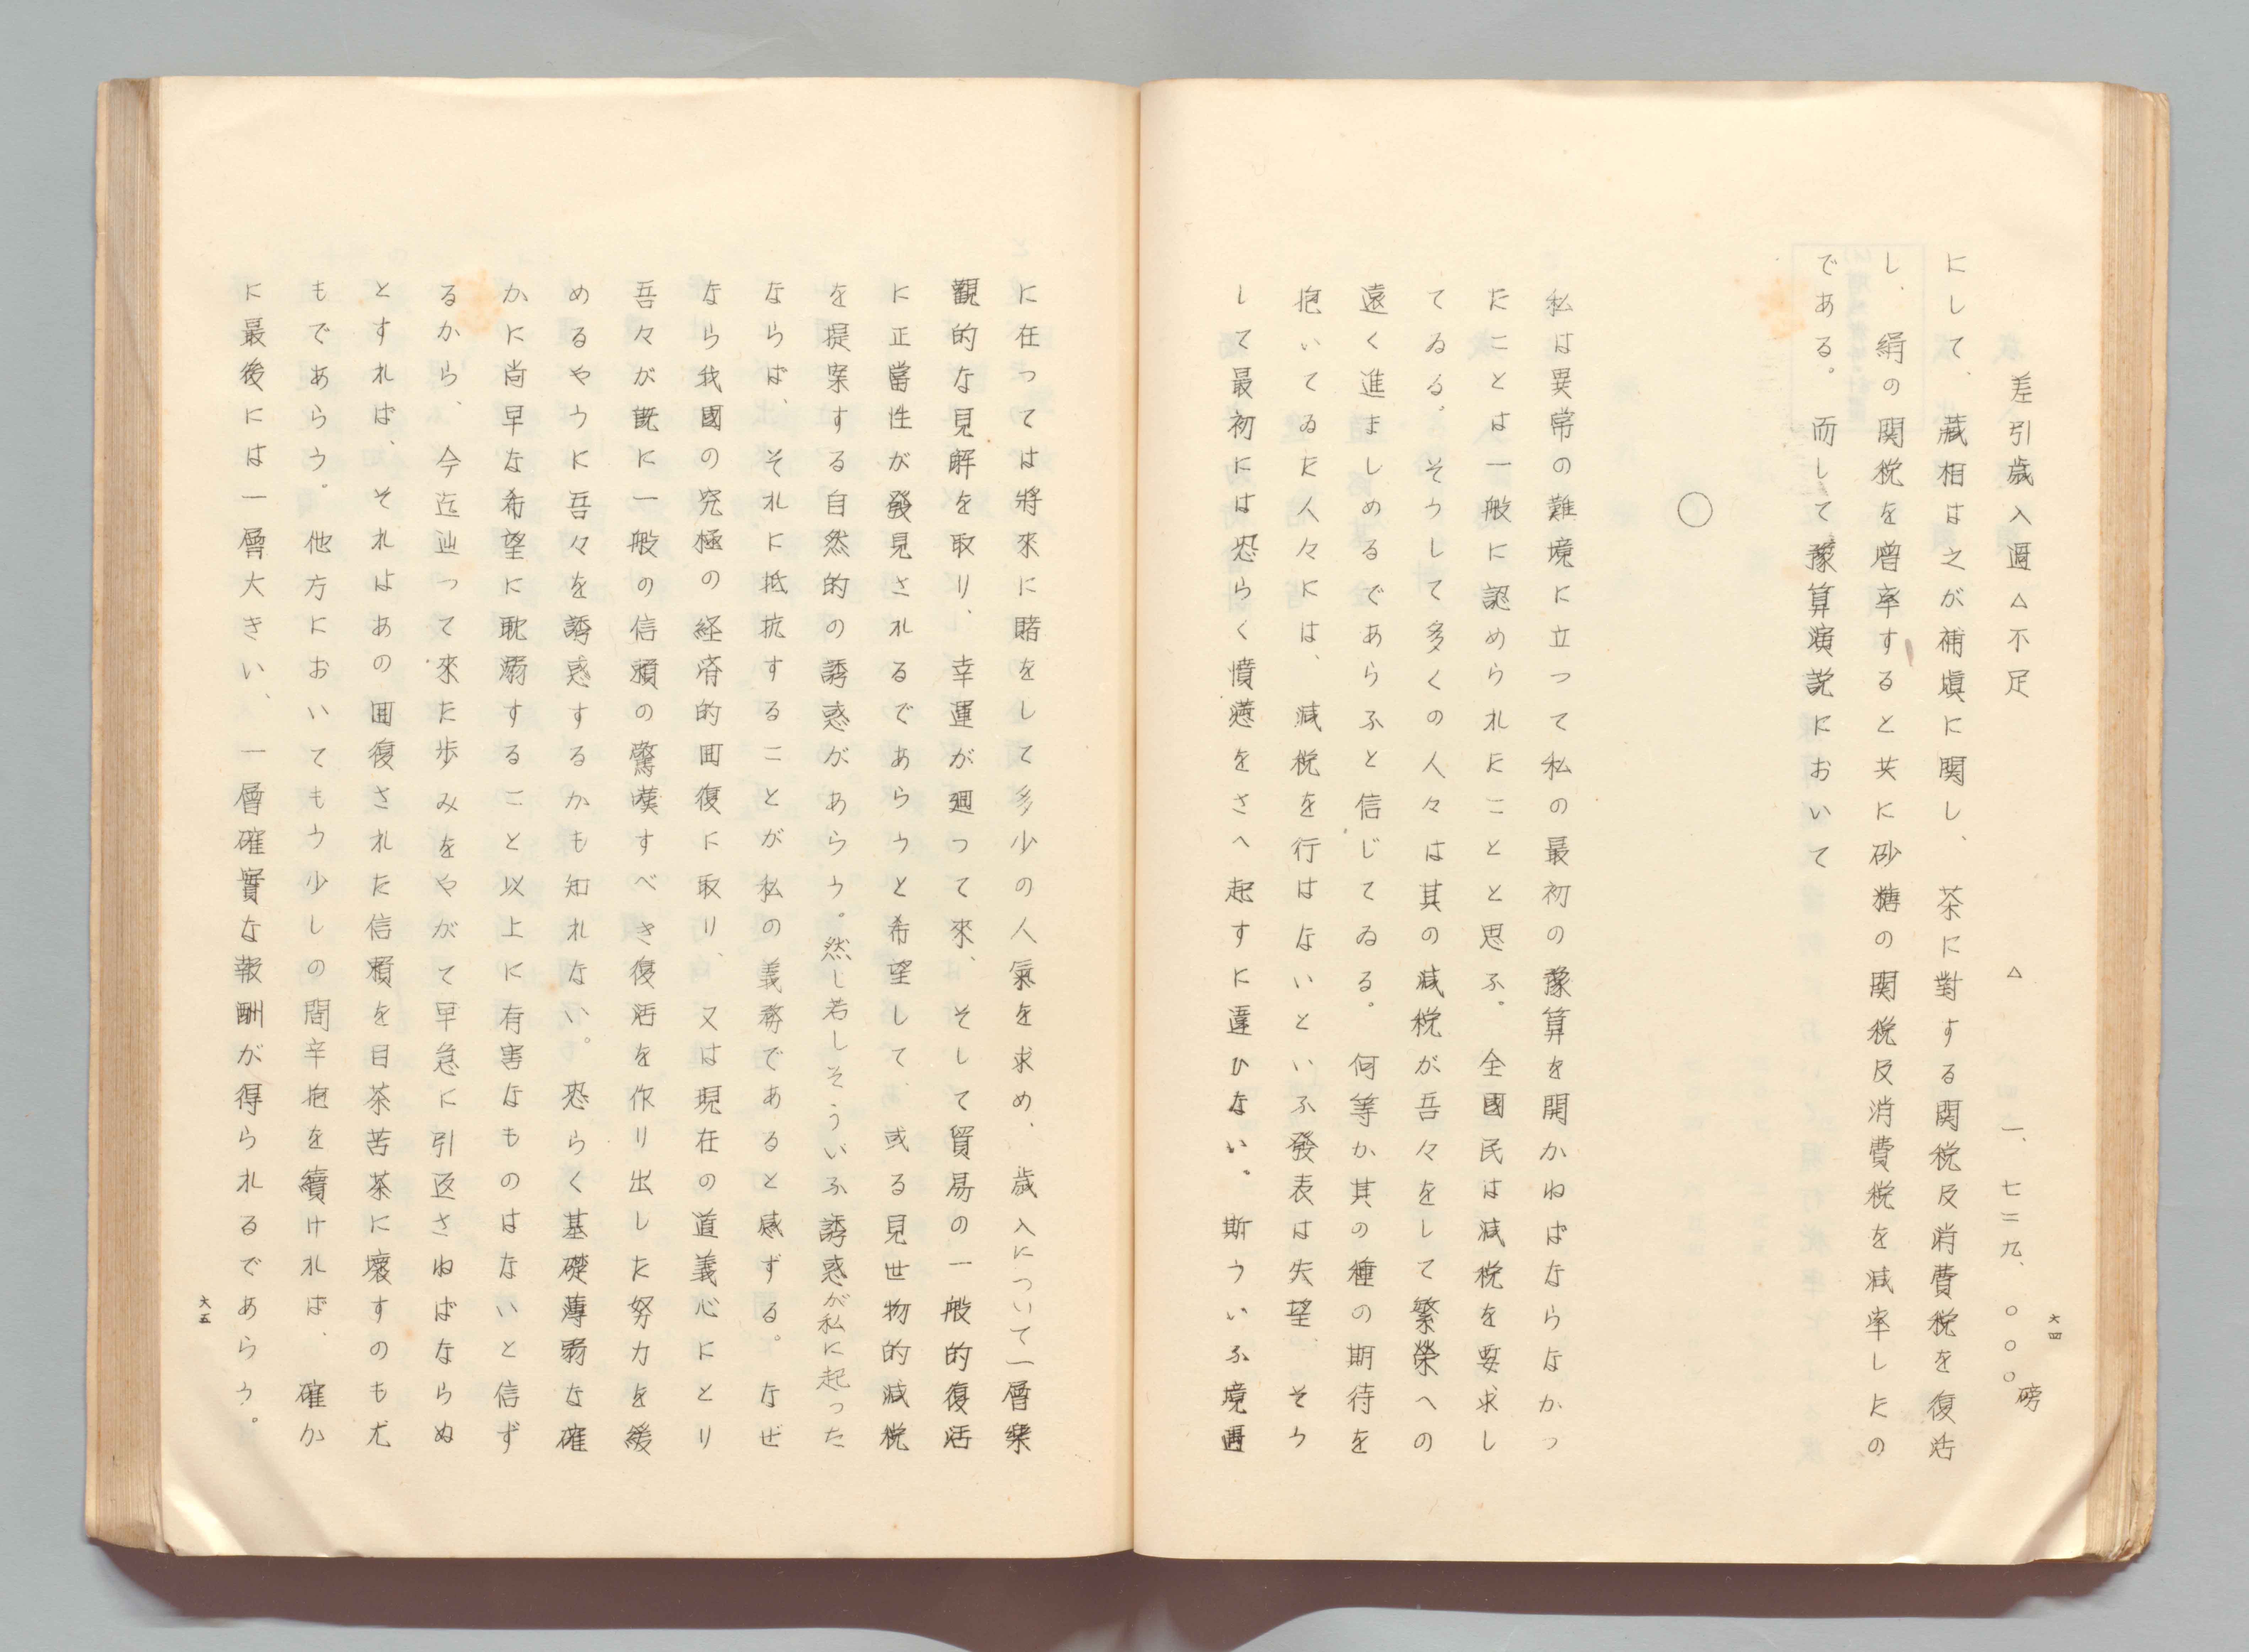 差引歳入過△不足　△　一、七二九、〇〇〇磅
にして、藏相は之が補塡に関し、茶に對する関税及消費税を復活
し、絹の関税を増率すると共に砂糖の関税及消費税を減率したの
である。而して豫算演説において
〇
私は異常の難境に立つて私の最初の豫算を開かねばならなかつ
たことは一般に認められたことと思ふ。全國民は減税を要求し
てゐる。そうして多くの人々は其の減税が吾々をして繁榮への
遠く進ましめるであらふと信じてゐる。何等か其の種の期待を
抱いてゐた人々には、減税を行はないといふ發表は失望、そう
して最初には恐らく憤懣をさへ起すに違ひない。斯ういふ境遇
六四
に在つては將來に賭をして多少の人氣を求め、歳入について一層樂
觀的な見解を取り、幸運が廻つて來、そして貿易の一般的復活
に正當性が發見されるであらうと希望して、或る見世物的減税
を提案する自然的の誘惑があらう。然し若しそういふ誘惑が私に起つた
ならば、それに抵抗することが私の義務であると感ずる。なぜ
なら我國の究極の経済的囬復に取り、又は現在の道義心にとり
吾々が既に一般の信頼の驚嘆すべき復活を作り出した努力を緩
めるやうに吾々を誘惑するかも知れない。恐らく基礎薄弱な確
かに尚早な希望に耽溺すること以上に有害なものはないと信ず
るから、今迄辿つて來た歩みをやがて早急に引返さねばならぬ
とすれば、それはあの囬復された信頼を目茶苦茶に壞すのも尤
もであらう。他方においてもう少しの間辛抱を續ければ、確か
に最後には一層大きい、一層確實な報酬が得られるであらう。
六五